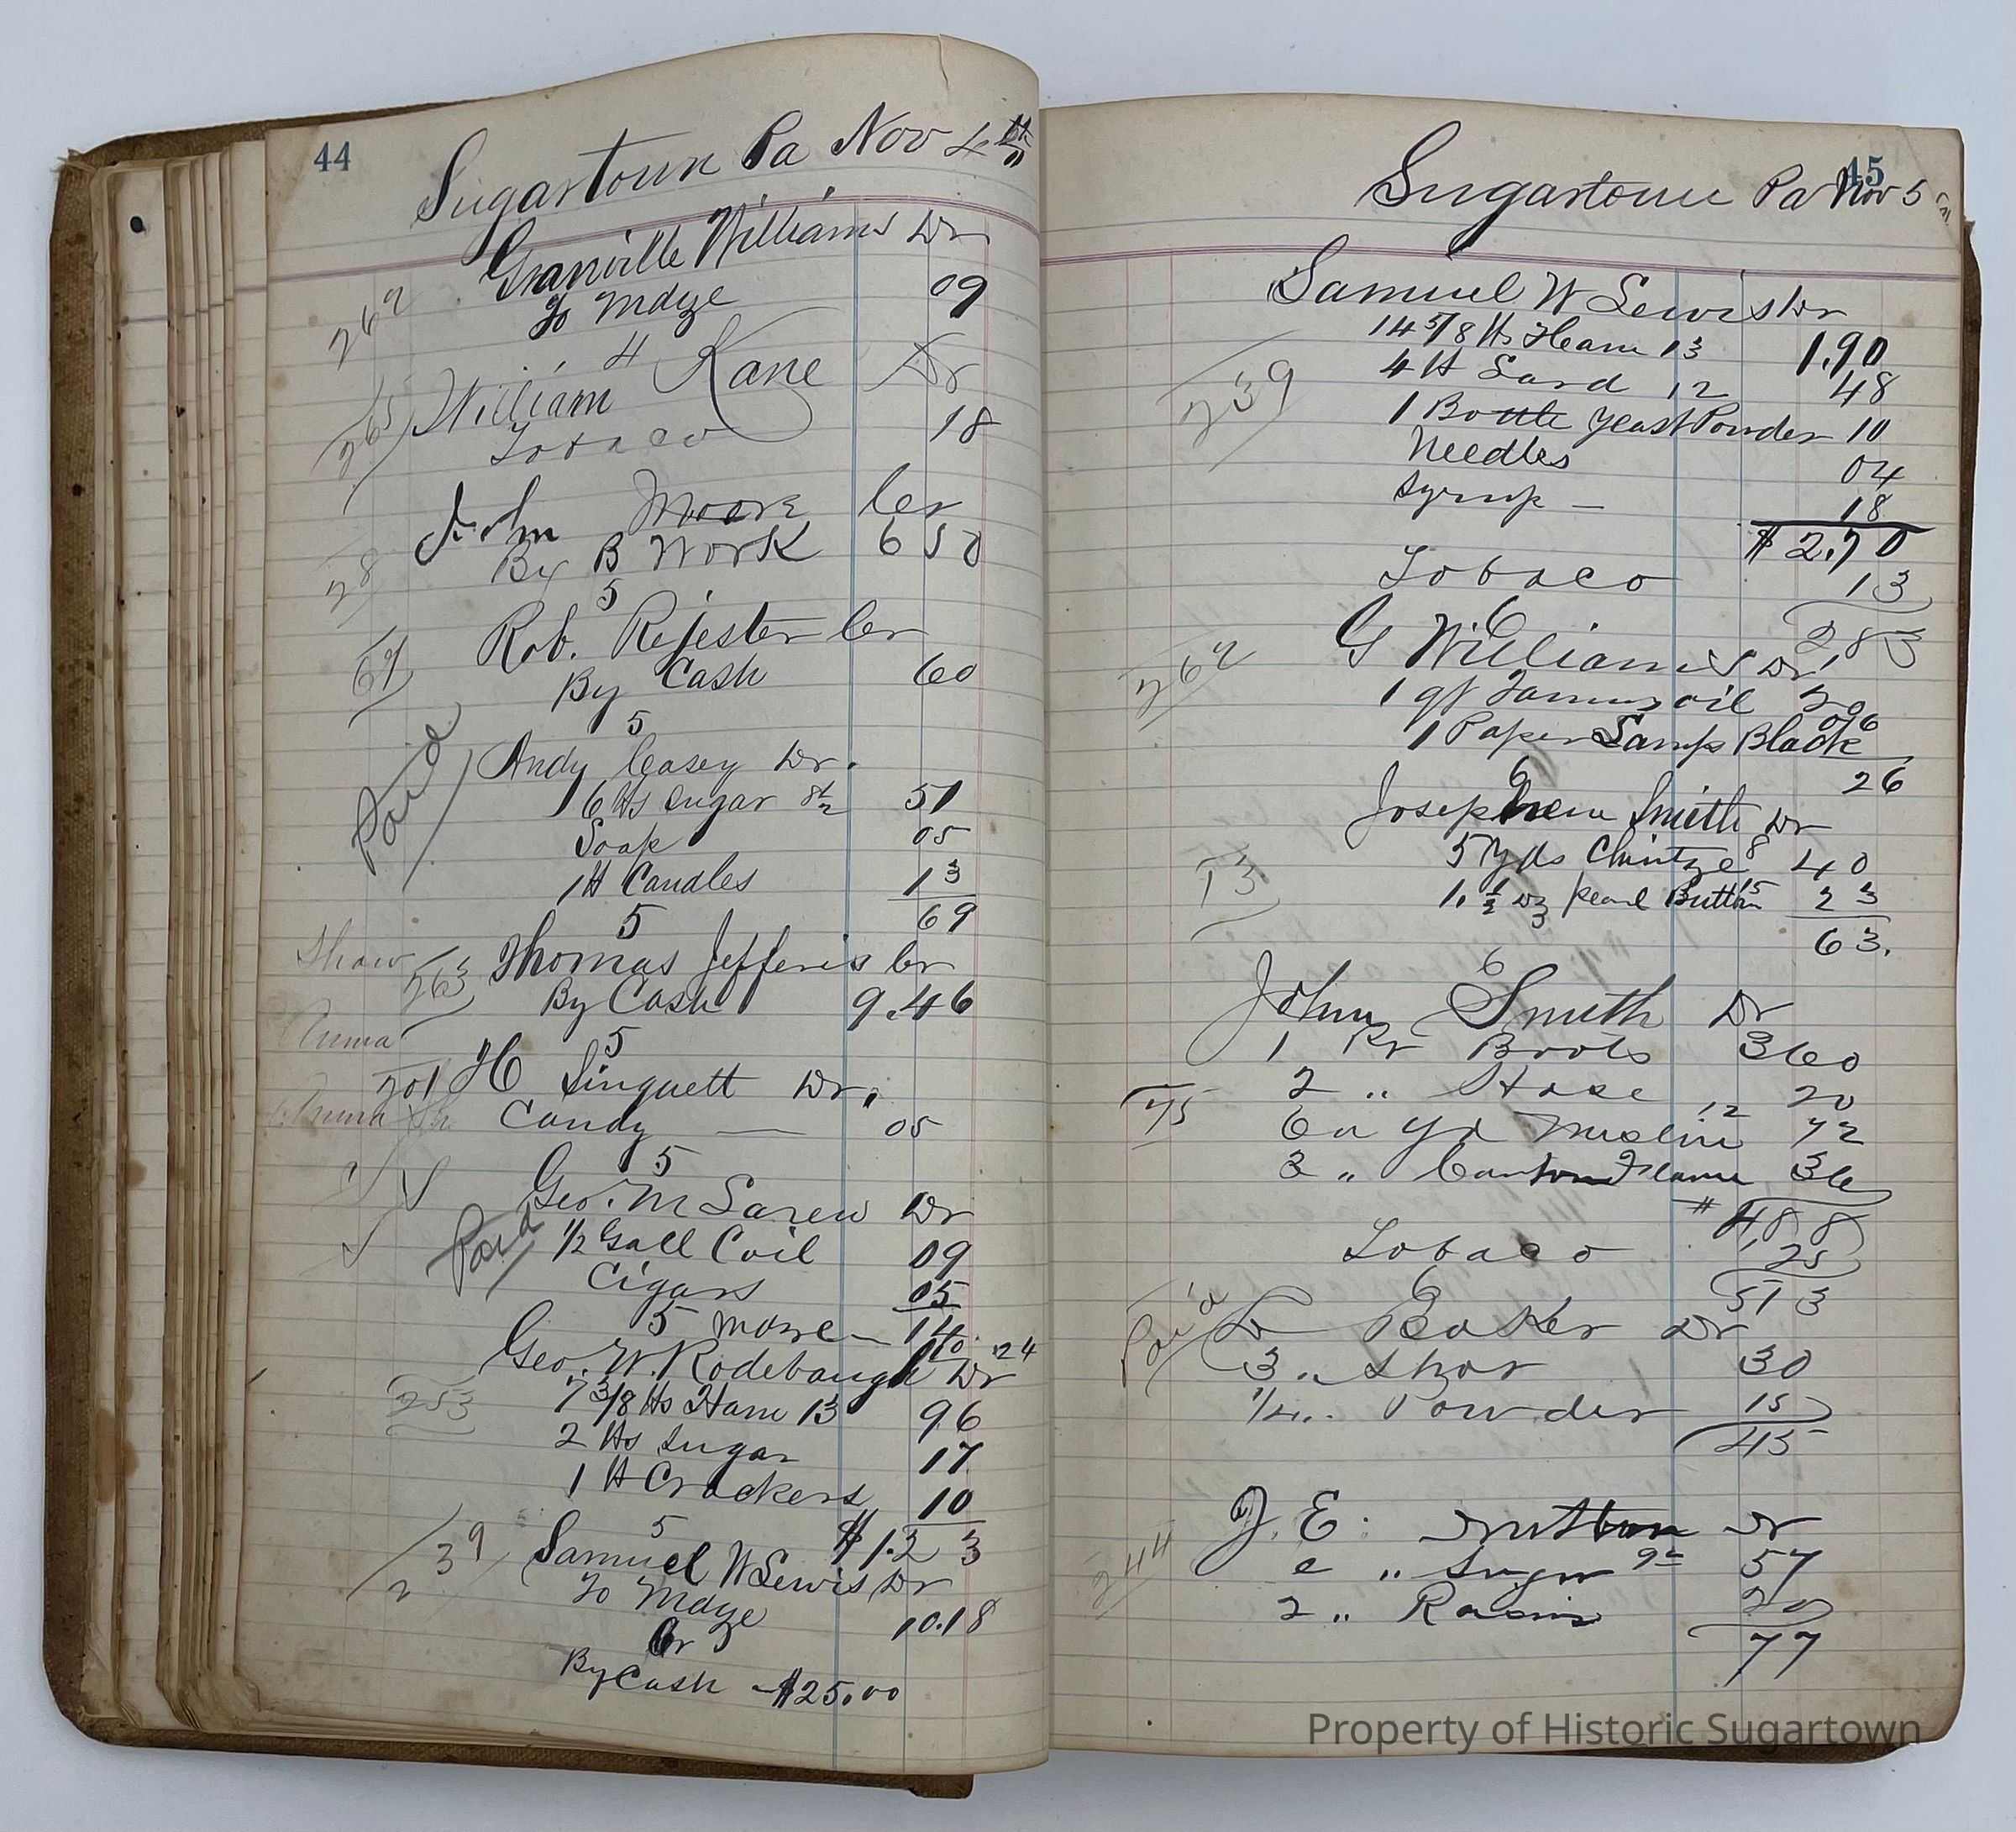 44
Sugartown Pa Nov 4th
Granville Williams Dr
262
To Mdze 09
4
William Kane Dr
265
Tobaco 18
John Moore Cr
28
By B Work 650
5
Rob. Rejester Cr
69
By Cash 60
5
Paid
Andy Casey Dr.
6 lbs Sugar 8½ 51
Soap 05
1 lb Candles 13
69
5
Shaw
263
Thomas Jefferis Cr
By Cash 9.46
Anna
5
201 H Singuett Dr.
Candy — 05
5
Geo. M Laren Dr
Paid
1/2 Gall Coil 09
Cigars 05
5 more — 14
10 24
Geo. W. Rodebaugh Dr
253
7 3/8 lbs Ham 13 96
2 lbs Sugar 17
1 lb Crackers 10
$1.23
5
239
Samuel W Lewis Dr
To Mdze 10.18
Cr
By Cash — $25.00
45
Sugartown Pa Nov 5
Samuel W Lewis Dr
14 5/8 lbs Ham 13 1.90
239
4 lb Lard 12 48
1 Bottle Yeast Powder 10
Needles 04
Syrup — 18
$ 2.70
Tobaco 13
283
6
G Williams Dr
262
1 qt Tannrs oil 20
1 Paper Lamp Black 06
26
6
Josephen Smith Dr
5 Yds Chintze 8 40
13
1. ½ Dz pearl Button 15 23
63.
6
John Smith Dr
1 Pr Boots 360
2 " Hose 20
75
6 " yd Muslin 12 72
3 " Canton Flann 36
# 488
Tobaco 25
513
6
Paid
Baker Dr
3 " Shot 30
1/2 " Powder 15
45
J. E. Dutton Dr
244
6 " Sugar 9½ 57
2 " Raisins 20
77
Property of Historic Sugartown